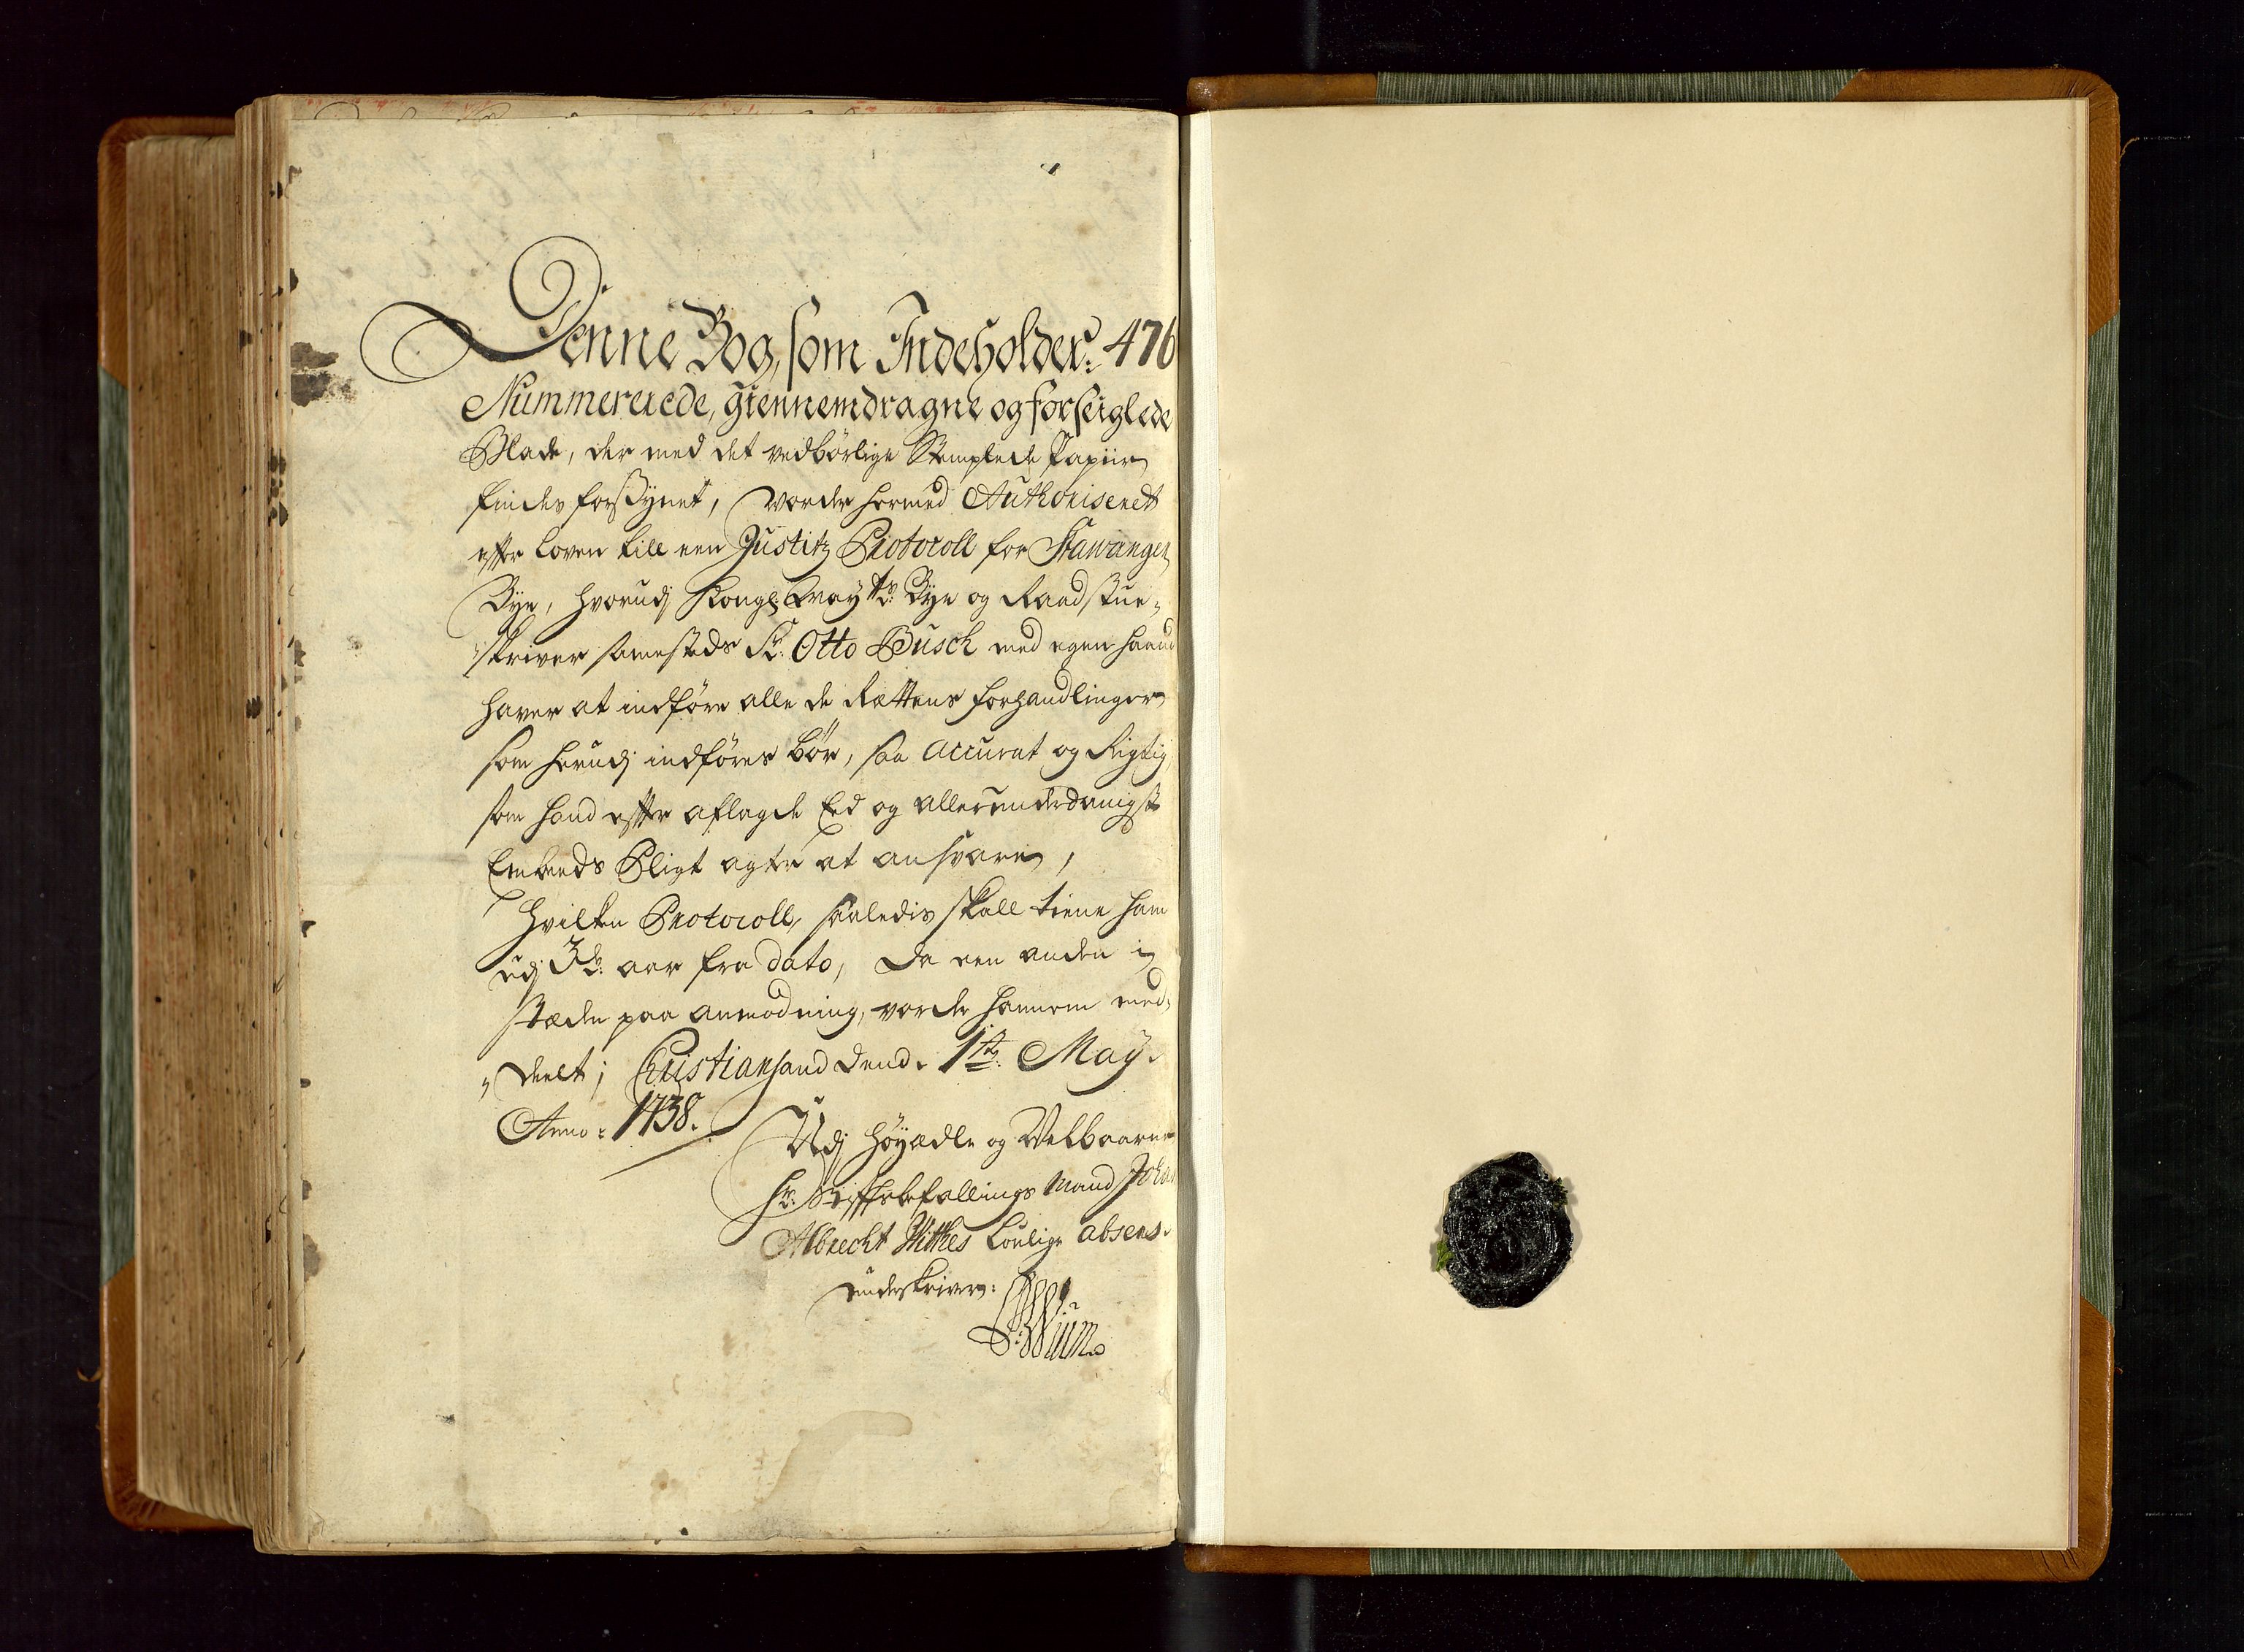 Denne Bog, som Indeholder: 476
Nummererede, giennemdragne og forseiglede
Blade, der med det vedbørlige Stemplede Papiir
findes forsÿynet, vorder hermed Authoriseret
efter Loven till een Justitz Protocoll for Stawanger
Bye, hvorudj Kongl: May:ts Bye og Raadstue-
skriver samesteds Sr. Otto Busch med egen haand
haver at indføre alle de Rættens forhandlinger
som herudj indføres bør, saa accurat og Rigtig,
som hand efter aflagde Eed og allerunderdanigst
Embeds Pligt agter at ansvare,
Hvilken Protocoll, saaledis skall tiene ham
udj 3de aar fra dato, da een anden i
stæden paa anmodning, vorde hannem med-
deelt; Christiansand dend. 1ste May.
Anno: 1738.
Udj Høyædle og Velbaarne
Hr: Stiftsbefallings Mand Johan
Albrecht Withes Lovlige absens.
underskriver: